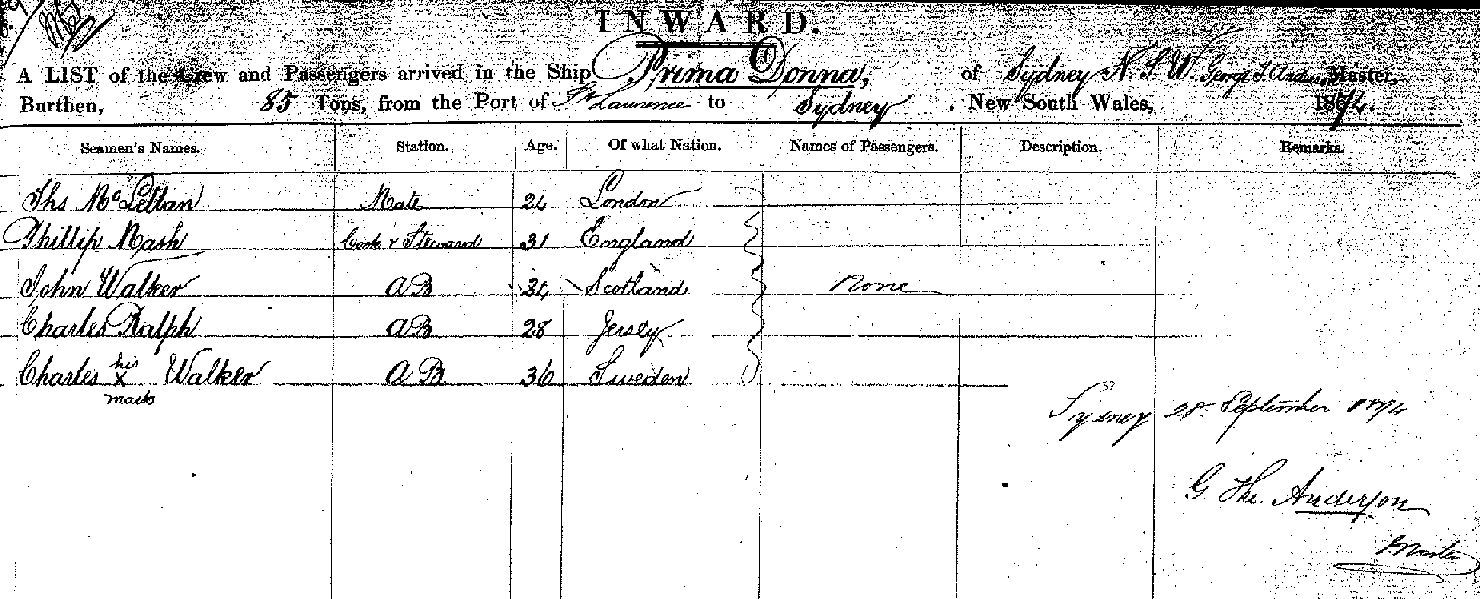 INWARD.
A LIST of the Crew and Passengers arrived in the Ship Prima Donna, of Sydney N.S.W. George T. Anderson Master,
Burthen, 85 Tons, from the Port of St Lawrence to Sydney, New South Wales, 187
Seamen's Names. Station. Age. Of what Nation. Names of Passengers. Description. Remarks.
Ths McLellan Mate London
Phillip Nash Cook & Steward 31 England
John Walker AB Scotland None
Charles Ralph AB 28 Jersey
Charles his x Walker AB 36 Sweden
mark
Sydney September
G Tho. Anderson
Master